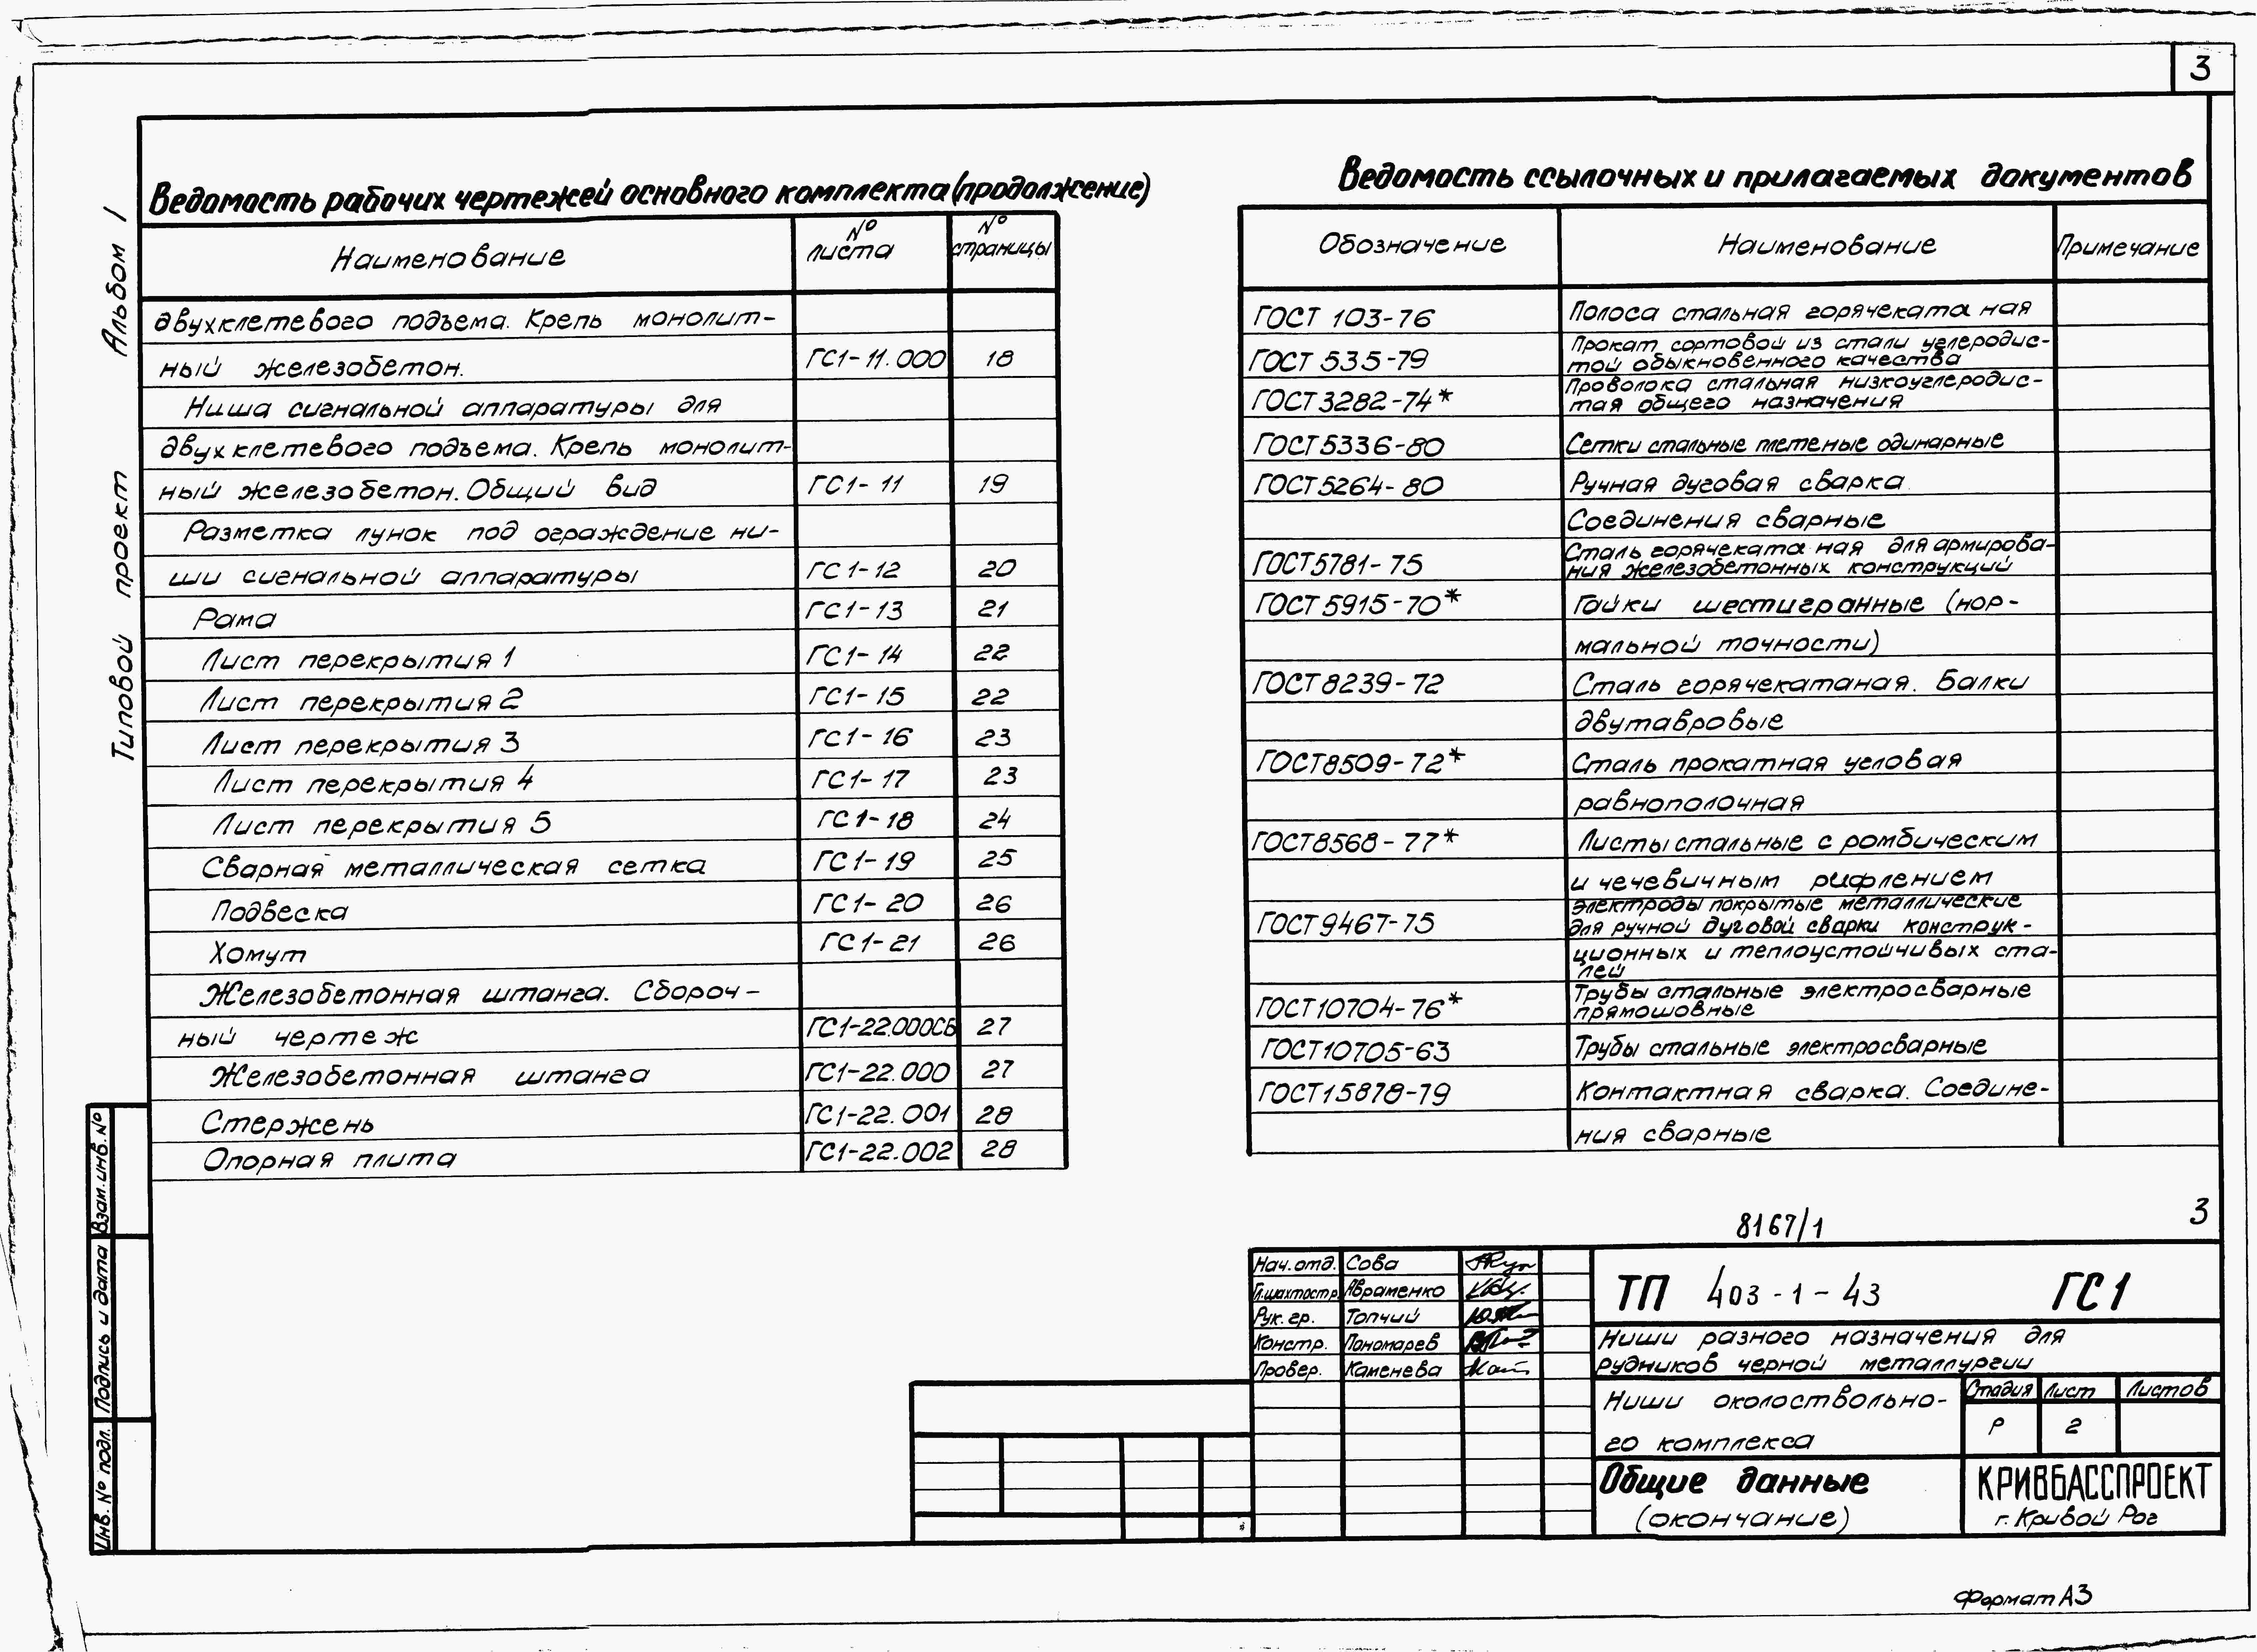 3
Альбом 1
Типовой проект
Ведомость рабочих чертежей основного комплекта (продолжение)
Наименование № листа № страницы
двухклетевого подъема. Крепь монолит-
ный железобетон. ГС1-11.000 18
Ниша сигнальной аппаратуры для
двухклетевого подъема. Крепь монолит-
ный железобетон. Общий вид ГС1-11 19
Разметка лунок под ограждение ни-
ши сигнальной аппаратуры ГС1-12 20
Рама ГС1-13 21
Лист перекрытия 1 ГС1-14 22
Лист перекрытия 2 ГС1-15 22
Лист перекрытия 3 ГС1-16 23
Лист перекрытия 4 ГС1-17 23
Лист перекрытия 5 ГС1-18 24
Сварная металлическая сетка ГС1-19 25
Подвеска ГС1-20 26
Хомут ГС1-21 26
Железобетонная штанга. Сбороч-
ный чертеж ГС1-22.000СБ 27
Железобетонная штанга ГС1-22.000 27
Стержень ГС1-22.001 28
Опорная плита ГС1-22.002 28
Ведомость ссылочных и прилагаемых документов
Обозначение Наименование Примечание
ГОСТ 103-76 Полоса стальная горячекатаная
ГОСТ 535-79 Прокат сортовой из стали углеродис-
той обыкновенного качества
ГОСТ 3282-74* Проволока стальная низкоуглеродис-
тая общего назначения
ГОСТ 5336-80 Сетки стальные плетеные одинарные
ГОСТ 5264-80 Ручная дуговая сварка
Соединения сварные
ГОСТ 5781-75 Сталь горячекатаная для армирова-
ния железобетонных конструкций
ГОСТ 5915-70* Гайки шестигранные (нор-
мальной точности)
ГОСТ 8239-72 Сталь горячекатаная. Балки
двутавровые
ГОСТ 8509-72* Сталь прокатная угловая
равнополочная
ГОСТ 8568-77* Листы стальные с ромбическим
и чечевичным рифлением
ГОСТ 9467-75 Электроды покрытые металлические
для ручной дуговой сварки конструк-
ционных и теплоустойчивых ста-
лей
ГОСТ 10704-76* Трубы стальные электросварные
прямошовные
ГОСТ 10705-63 Трубы стальные электросварные
ГОСТ 15878-79 Контактная сварка. Соедине-
ния сварные
8167/1 3
Нач. отд. Сова
Гл. шахтостр. Авраменко
Рук. гр. Топчий
Констр. Пономарев
Провер. Каменева
ТП 403-1-43 ГС1
Ниши разного назначения для
рудников черной металлургии
Ниши околоствольно-
го комплекса
Стадия Лист Листов
Р 2
Общие данные
(окончание)
КРИВБАССПРОЕКТ
г. Кривой Рог
Инв. № подл. Подпись и дата Взам. инв. №
Формат А3